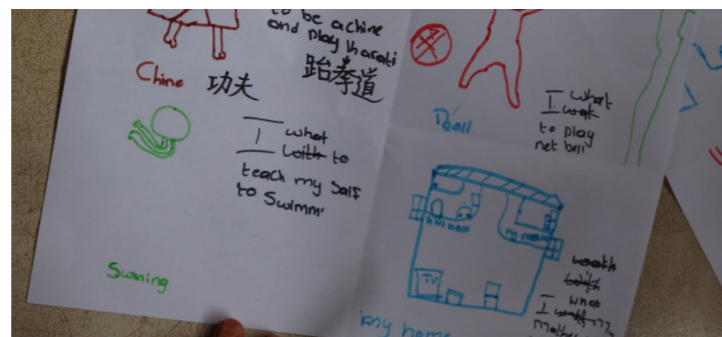 to be a chine
and play karati
跆拳道
Chine 功夫
I what
with to
teach my self
to Swimm
Swming
Ball
I what
to play
net ball
my room
TV
I what
my home